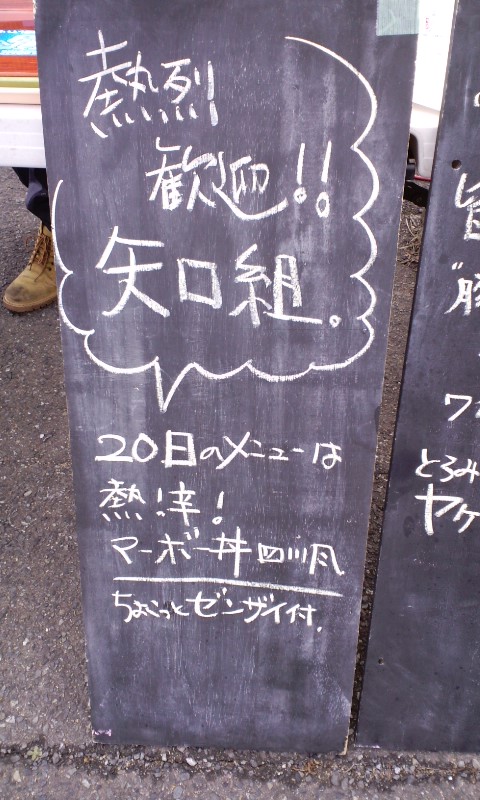 熱烈
歓迎!!
矢口組.
20日のメニューは
熱!辛!
マーボー丼四川風
ちょこっとゼンザイ付.
旨
"豚
ワ
とろみ
ヤケ